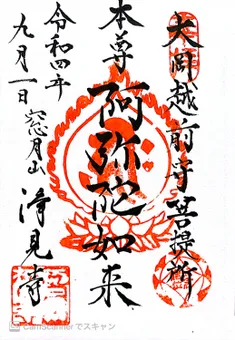 大岡越前守菩提所
本尊
阿弥陀如来
令和四年
九月一日
窓月山
浄見寺
CamScannerでスキャン